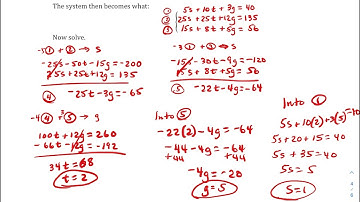 The system then becomes what:
① 5s + 10t + 3g = 40
② 25s + 25t + 12g = 135
③ 15s + 8t + 5g = 56
Now solve.
-5 ① + ② → s
-25s - 50t - 15g = -200
25s + 25t + 12g = 135
④ -25t - 3g = -65
-3 ① + ③ → s
-15s - 30t - 9g = -120
15s + 8t + 5g = 56
⑤ -22t - 4g = -64
-4 ④ 3 ⑤ → g
100t + 12g = 260
-66t - 12g = -192
34t = 68
t = 2
Into ⑤
-22(2) - 4g = -64
-44 - 4g = -64
+44 +44
-4g = -20
g = 5
Into ①
5s + 10(2) + 3(5) = 40
5s + 20 + 15 = 40
5s + 35 = 40
5s = 5
s = 1